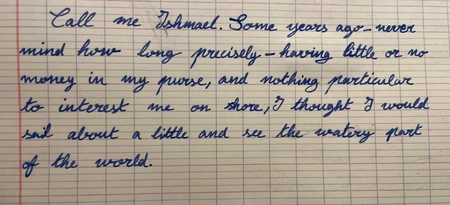 Call me Ishmael. Some years ago - never
mind how long precisely - having little or no
money in my purse, and nothing particular
to interest me on shore, I thought I would
sail about a little and see the watery part
of the world.